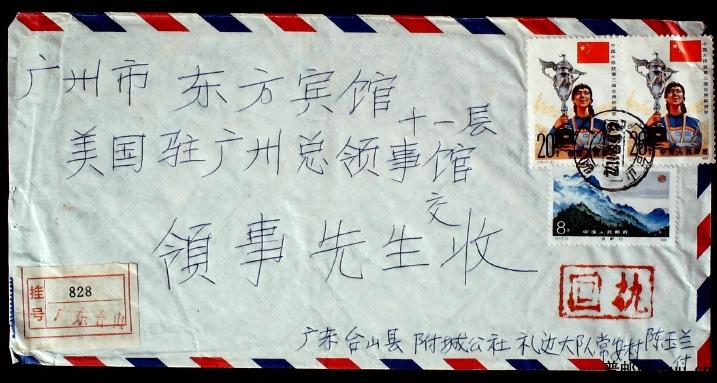 广州市 东方宾馆
十一层
美国驻广州总领事馆
交
领事先生收
中国人民邮政
20
中国人民邮政
20
8分
中国人民邮政
挂号
828
广东台山
回执
广东台山县附城公社礼边大队常安村陈玉兰
付